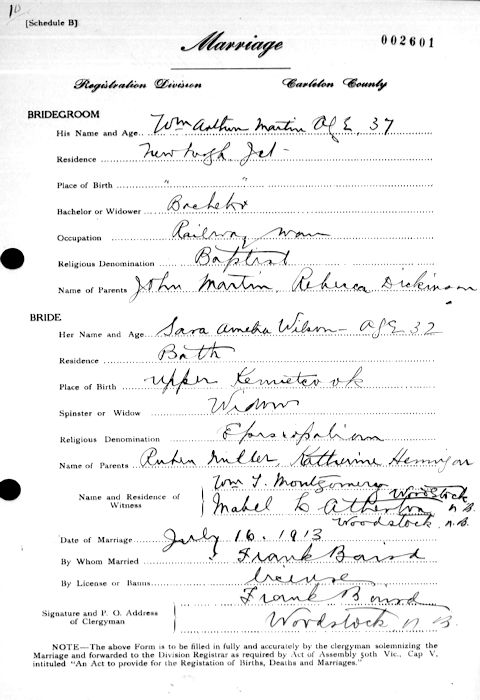 10
[Schedule B]
Marriage
002601
Registration Division Carleton County
BRIDEGROOM
His Name and Age Wm Arthur Martin Age 37
Residence Newburgh Jct
Place of Birth " "
Bachelor or Widower Bachelor
Occupation Railway man
Religious Denomination Baptist
Name of Parents John Martin, Rebecca Dickinson
BRIDE
Her Name and Age Sara Amelia Wilson - Age 32
Residence Bath
Place of Birth Upper
Spinster or Widow Widow
Religious Denomination Episcopalian
Name of Parents Ruben Katherine
Wm T. Montgomery
Woodstock
Name and Residence of Witness Mabel L Atherton N.B.
Woodstock N.B.
Date of Marriage July 16. 1913
By Whom Married Frank Baird
By License or Banns license
Frank Baird
Signature and P. O. Address of Clergyman
Woodstock N.B.
NOTE—The above Form is to be filled in fully and accurately by the clergyman solemnizing the
Marriage and forwarded to the Division Registrar as required by Act of Assembly 50th Vic., Cap V,
intituled "An Act to provide for the Registation of Births, Deaths and Marriages."